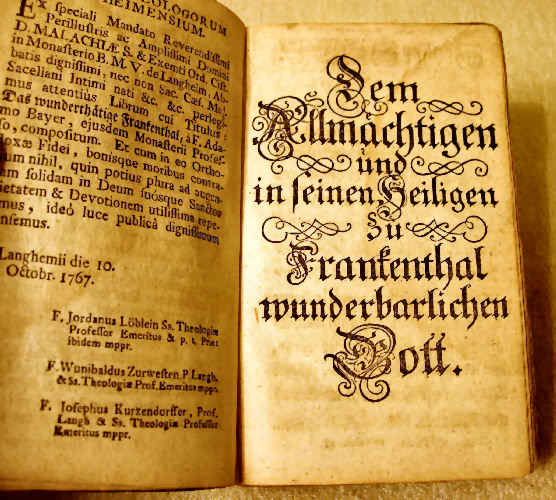 OLOGORUM
HEIMENSIUM.
Ex speciali Mandato Reverendissimi
Perillustris ac Amplissimi Domini
D. MALACHIÆ S. & Exempti Ord. Cist.
in Monasterio B. M. V. de Langheim, Ab-
batis dignissimi, nec non Sac. Cæs. Maj.
Sacellani Intimi nati &c. &c. perlegi-
mus attentius Librum cui Titulus:
Das wunderthätige Frankenthal, à F. Ada-
mo Bayer, ejusdem Monasterii Profes-
so, compositum. Et cum in eo Ortho-
oxæ Fidei, bonisque moribus contra-
um nihil, quin potius plura ad augen-
am solidam in Deum suosque Sanctos
ietatem & Devotionem utilissima repe-
imus, ideò luce publicâ dignissimum
nsemus.
Langhemii die 10.
Octobr. 1767.
F. Jordanus Löblein Ss. Theologiæ
Professor Emeritus & p. t. Prior
ibidem mppr.
F. Wunibaldus Zurwesten, P. Langh.
& Ss. Theologiæ Prof. Emeritus mppr.
F. Josephus Kurzendorffer, Prof.
Langh & Ss. Theologiæ Professor
Emeritus mppr.
Dem
Allmächtigen
und
in seinen Heiligen
zu
Frankenthal
wunderbarlichen
Gott.